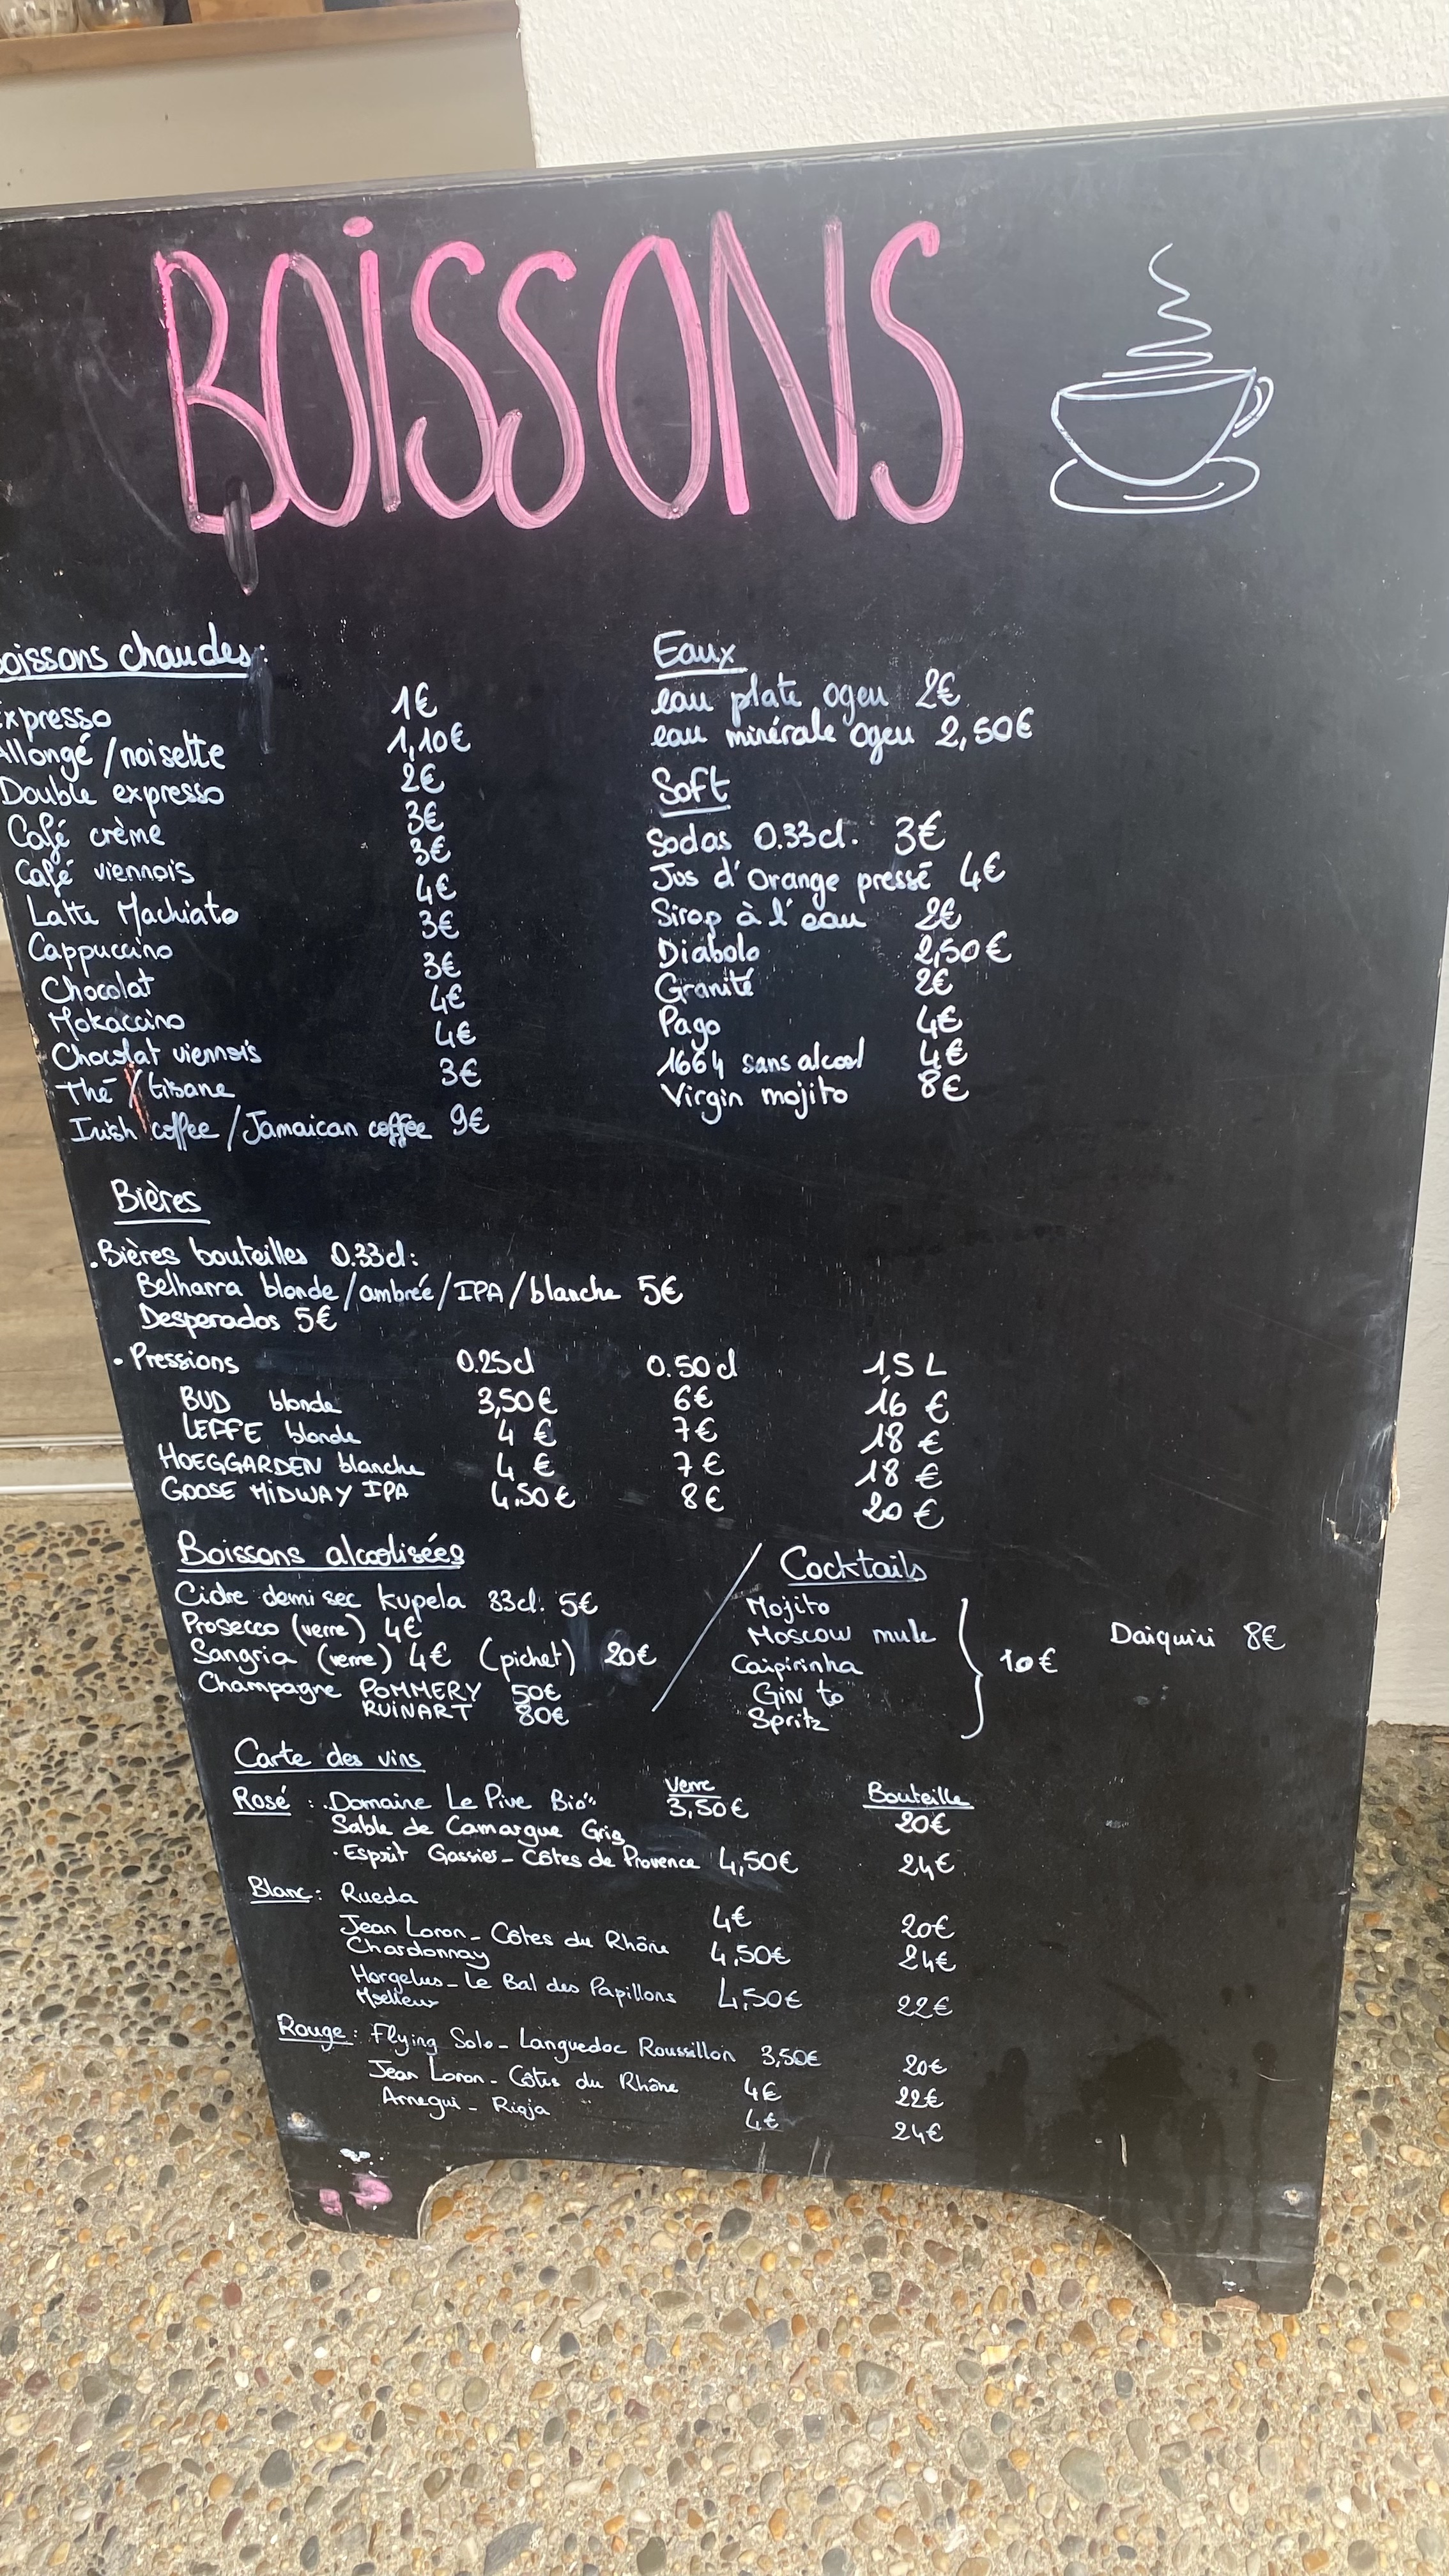 BOISSONS
Boissons chaudes:
Expresso 1€
Allongé/noisette 1,10€
Double expresso 2€
Café crème 3€
Café viennois 3€
Latte Machiato 4€
Cappuccino 3€
Chocolat 3€
Mokaccino 4€
Chocolat viennois 4€
Thé/tisane 3€
Irish coffee/Jamaican coffee 9€
Eaux
eau plate ogeu 2€
eau minérale ogeu 2,50€
Soft
Sodas 0.33cl. 3€
Jus d'Orange pressé 4€
Sirop à l'eau 2€
Diabolo 2,50€
Granité 2€
Pago 4€
1664 sans alcool 4€
Virgin mojito 8€
Bières
.Bières bouteilles 0.33cl:
Belharra blonde/ambrée/IPA/blanche 5€
Desperados 5€
• Pressions 0.25cl 0.50cl 1,5 L
BUD blonde 3,50€ 6€ 16 €
LEFFE blonde 4 € 7€ 18 €
HOEGGARDEN blanche 4 € 7€ 18 €
GOOSE MIDWAY IPA 4,50€ 8€ 20€
Boissons alcoolisées
Cidre demi sec Kupela 33cl. 5€
Prosecco (verre) 4€
Sangria (verre) 4€ (pichet) 20€
Champagne POMMERY 50€
RUINART 80€
Cocktails
Mojito
Moscow mule
Caipirinha
Gin to
Spritz
10€
Daiquiri 8€
Carte des vins
Verre Bouteille
Rosé : "Domaine Le Pive Bio" 3,50€ 20€
Sable de Camargue Gris
• Esprit Gassier - Côtes de Provence 4,50€ 24€
Blanc: Rueda 4€ 20€
Jean Loron - Côtes du Rhône 4,50€ 24€
Chardonnay
Horgelus - Le Bal des Papillons 4,50€ 22€
Moelleux
Rouge: Flying Solo - Languedoc Roussillon 3,50€ 20€
Jean Loron - Côtes du Rhône 4€ 22€
Arnegui - Rioja 4€ 24€